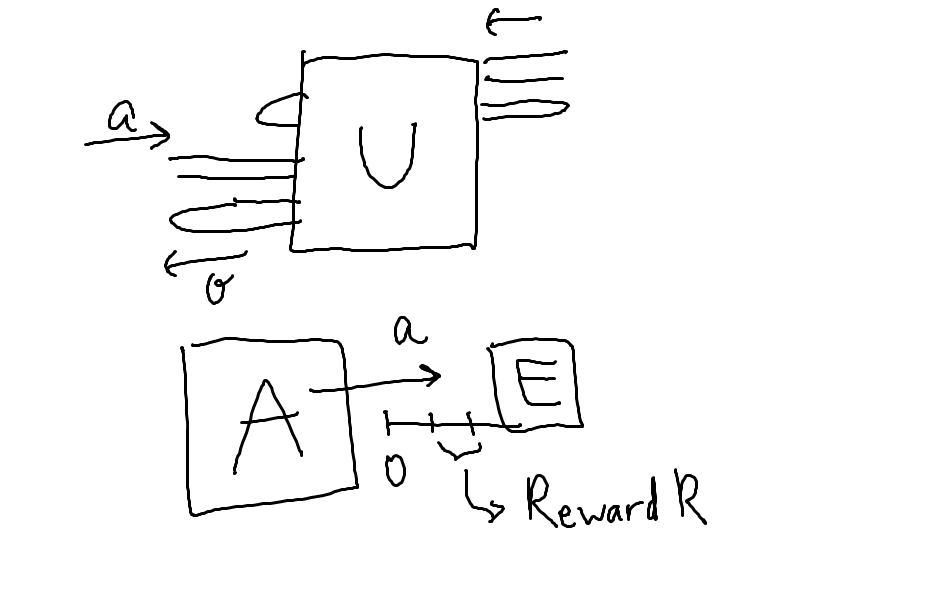 a
U
σ
a
A
E
0
Reward R